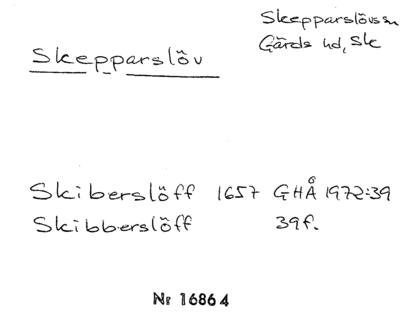 Skepparslöv
Skepparslövs sn
Gärds hd, Sk
Skiberslöff 1657 GHÅ 1972:39
Skibberslöff 39f.
Nr 16864